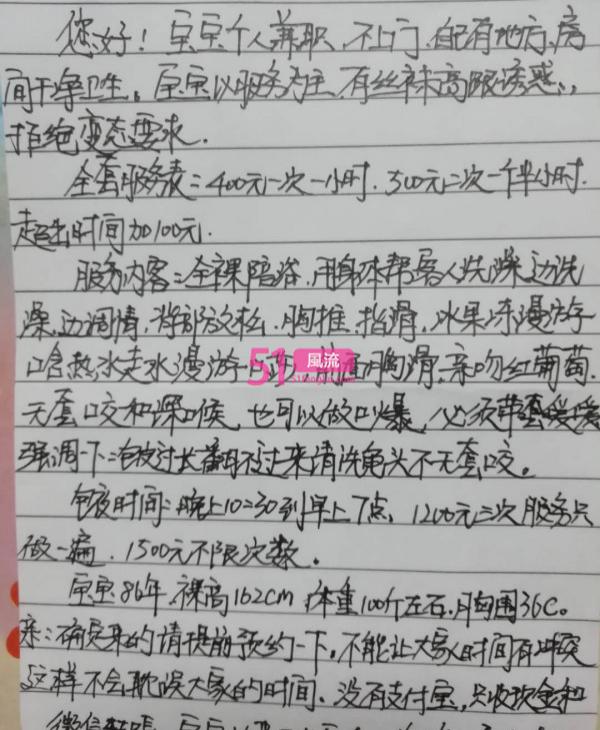 您好！宝宝个人兼职，不上门，自配有地方，房
间干净卫生。宝宝以服务为主，有丝袜高跟诱惑，
拒绝变态要求．
全套服务表：400元一次一小时．500元二次一个半小时．
超出时间加100元．
服务内容：全裸陪浴，用身体帮客人洗澡边洗
澡，边调情，背部放松，胸推，指滑，水果冻漫游
含热水走水漫游
51風流
胸滑，亲吻红葡萄．
无套咬和深喉，也可以做口爆，必须带套嗳嗳
强调一下：包皮过长翻不过来请洗龟头不无套咬。
包夜时间：晚上10:30到早上7点，1200元三次服务只
做一遍．1500元不限次数．
宝宝86年．裸高162cm 体重100斤左右，胸围36C。
亲：确定来的请提前预约一下，不能让大家时间有冲突
这样不会耽误大家的时间．没有支付宝，只收现金和
微信转账